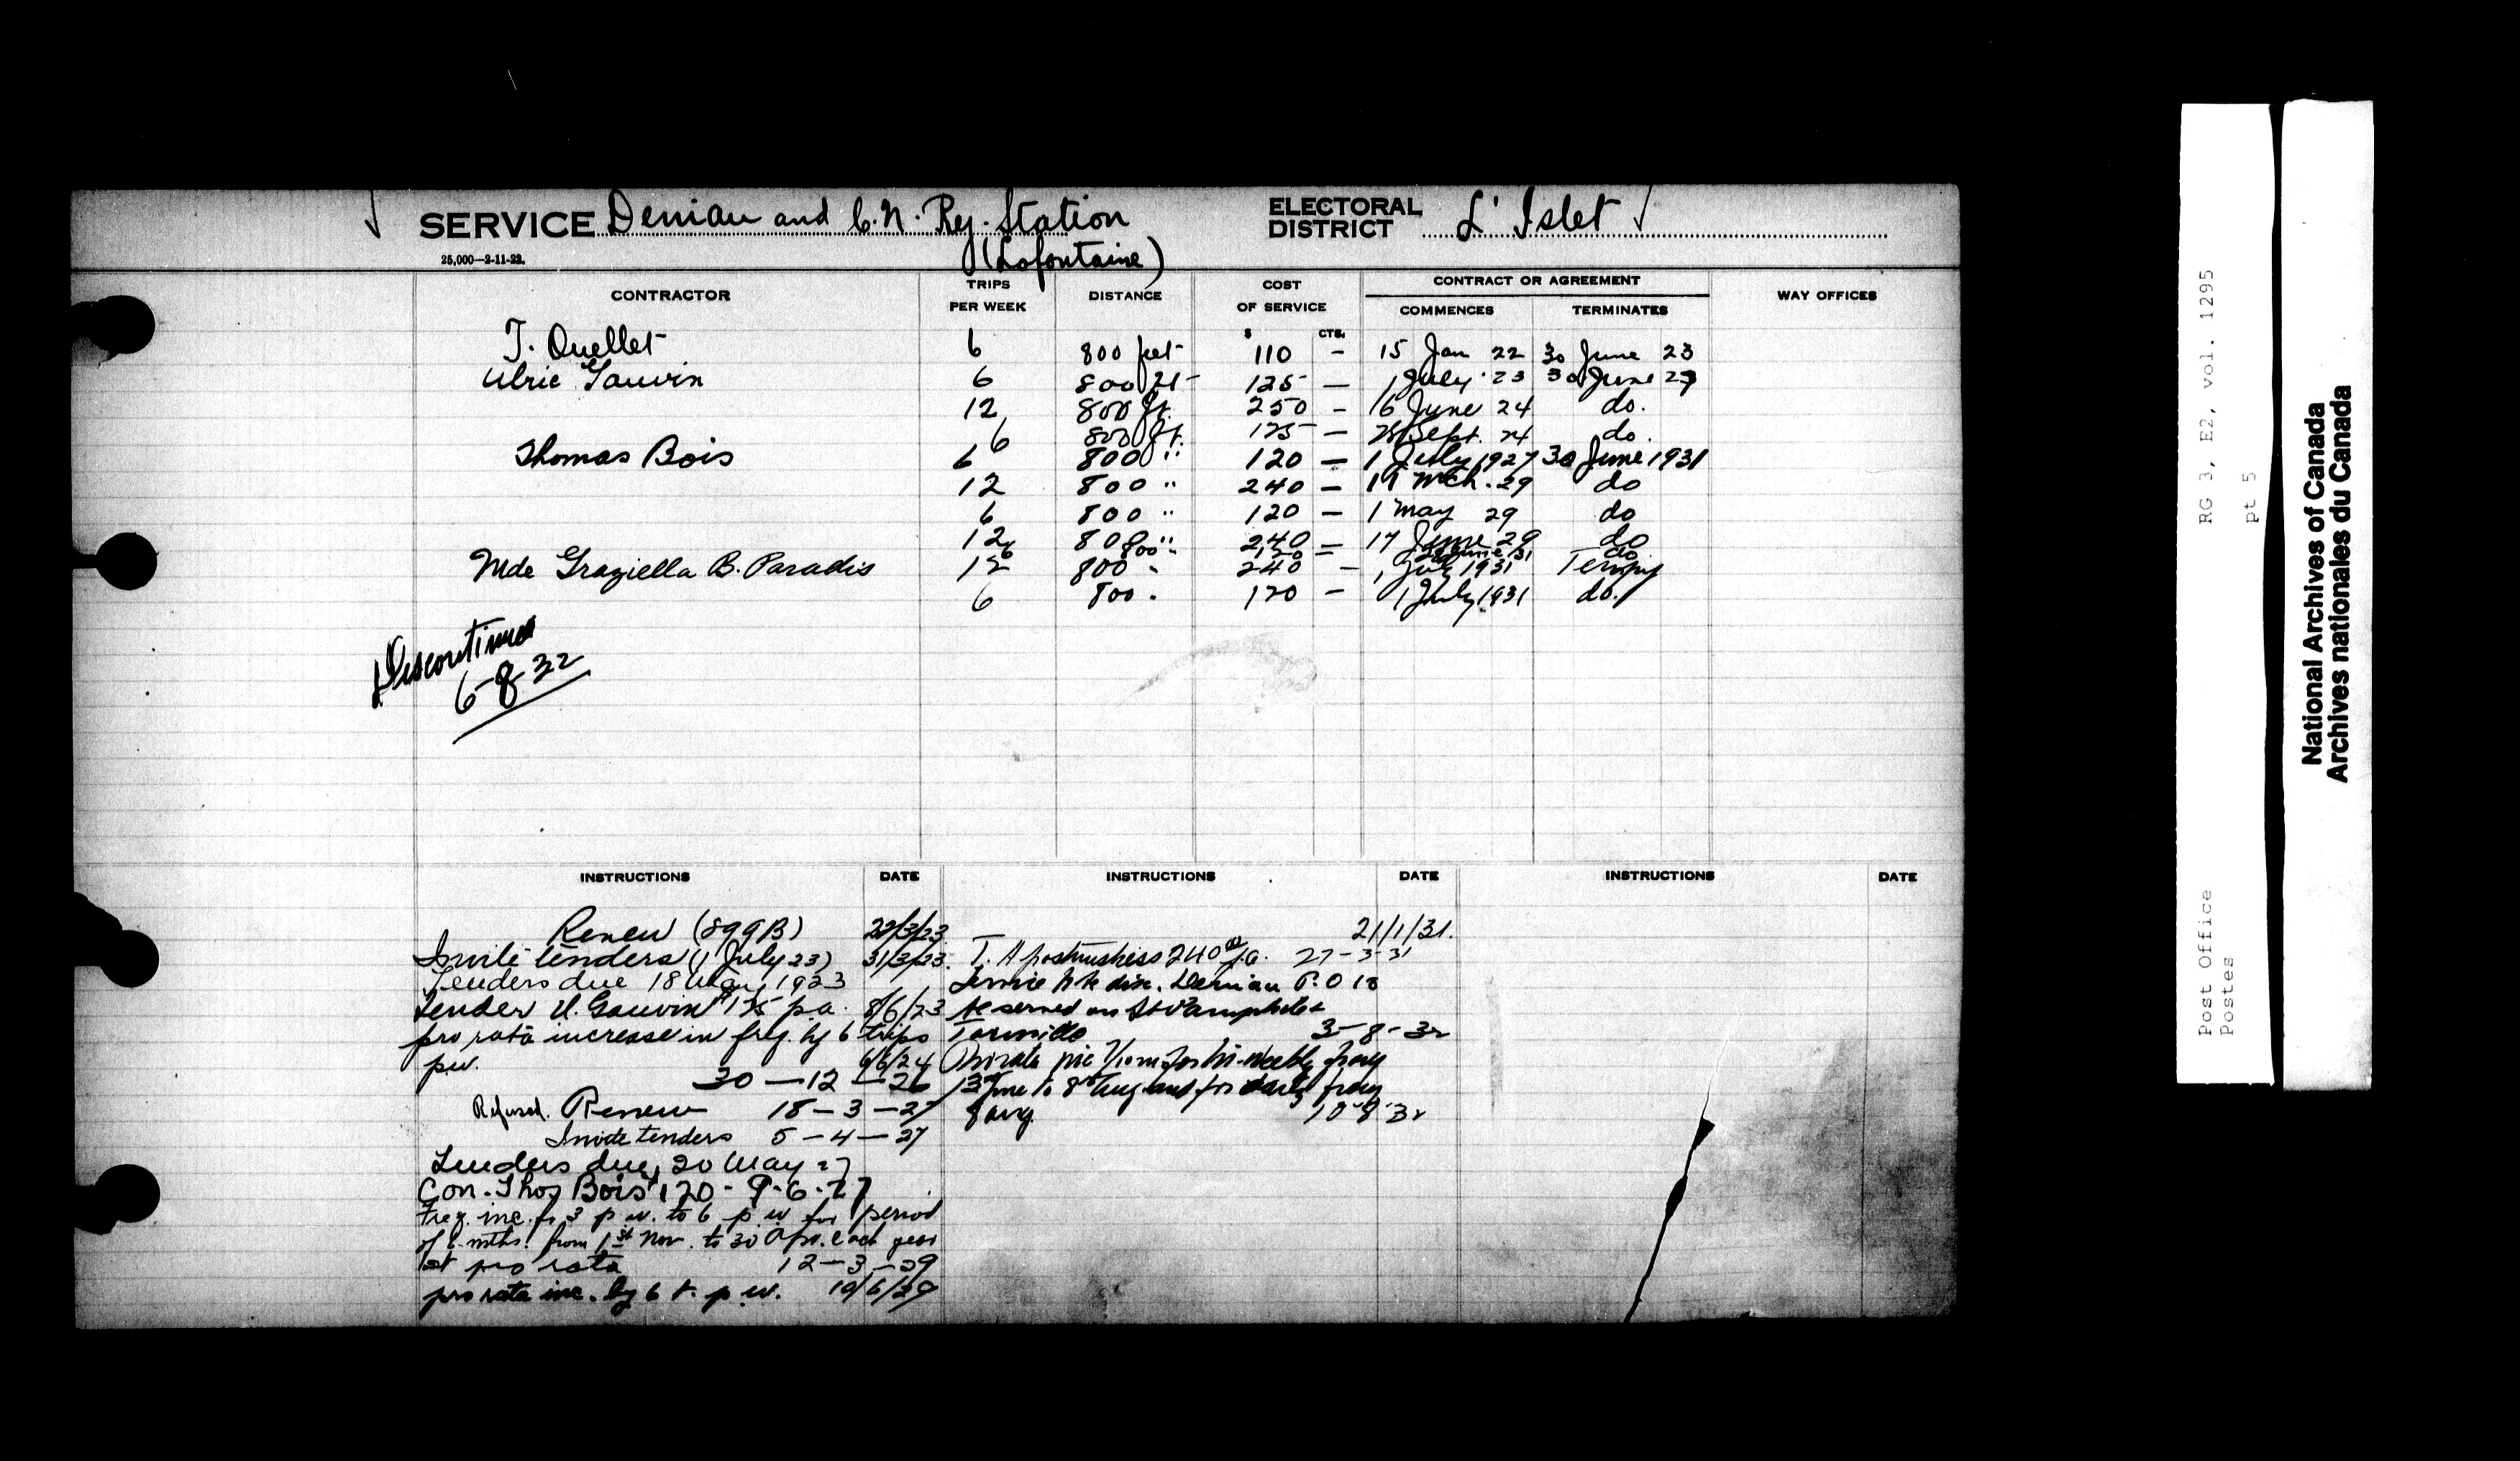 SERVICE Deniau and C.N. Ry. Station
(Lafontaine)
ELECTORAL DISTRICT L'Islet
25,000—2-11-22.
CONTRACTOR TRIPS PER WEEK DISTANCE COST OF SERVICE CONTRACT OR AGREEMENT WAY OFFICES
COMMENCES TERMINATES
$ CTS.
T. Ouellet 6 800 feet 110 — 15 Jan 22 30 June 23
Ulric Gauvin 6 800 ft 125 — 1 July 23 30 June 27
12 800 ft. 250 — 16 June 24 do.
6 800 ft. 125 — Sept. 24 do.
Thomas Bois 6 800 " 120 — 1 July 1927 30 June 1931
12 800 " 240 — Mch. 29 do
6 800 " 120 — 1 May 29 do
12 800 " 240 — 17 June 29 do
6 800 " 120 — June 31 do
Mde Graziella B. Paradis 12 800 " 240 — 1 July 1931 Tempy
6 800 " 120 — 1 July 1931 do.
Discontinued
6-8-32
INSTRUCTIONS DATE INSTRUCTIONS DATE INSTRUCTIONS DATE
Renew (899B) /3/23
Invite tenders (1 July 23) 31/3/23.
Tenders due 18 May 1923
Tender U. Gauvin $125 p.a. 8/6/23
pro rata increase in freq. by 6 trips
p.w. 6/6/24
30—12—26
Refused. Renew 18—3—27
Invite tenders 5—4—27
Tenders due, 20 May 27
Con. Thos Bois $120 - 9-6-27
Freq. inc. fr 3 p.w. to 6 p.w for period
of 6 mths. from 1st Nov. to 30 Apr. each year
at pro rata 12—3—29
pro rata inc. by 6 t. p.w. 19/6/29
21/1/31.
T. A postmistress 240 00 p.a. 27-3-31
Service to be disc. Deniau P.O to
be served on St Pamphile &
Tourville 3-8-32
for bi-weekly freq
13 June to 8th Aug and for daily freq
8 Aug. 10-8-32
RG 3, E2, vol. 1295
pt 5
Post Office
Postes
National Archives of Canada
Archives nationales du Canada